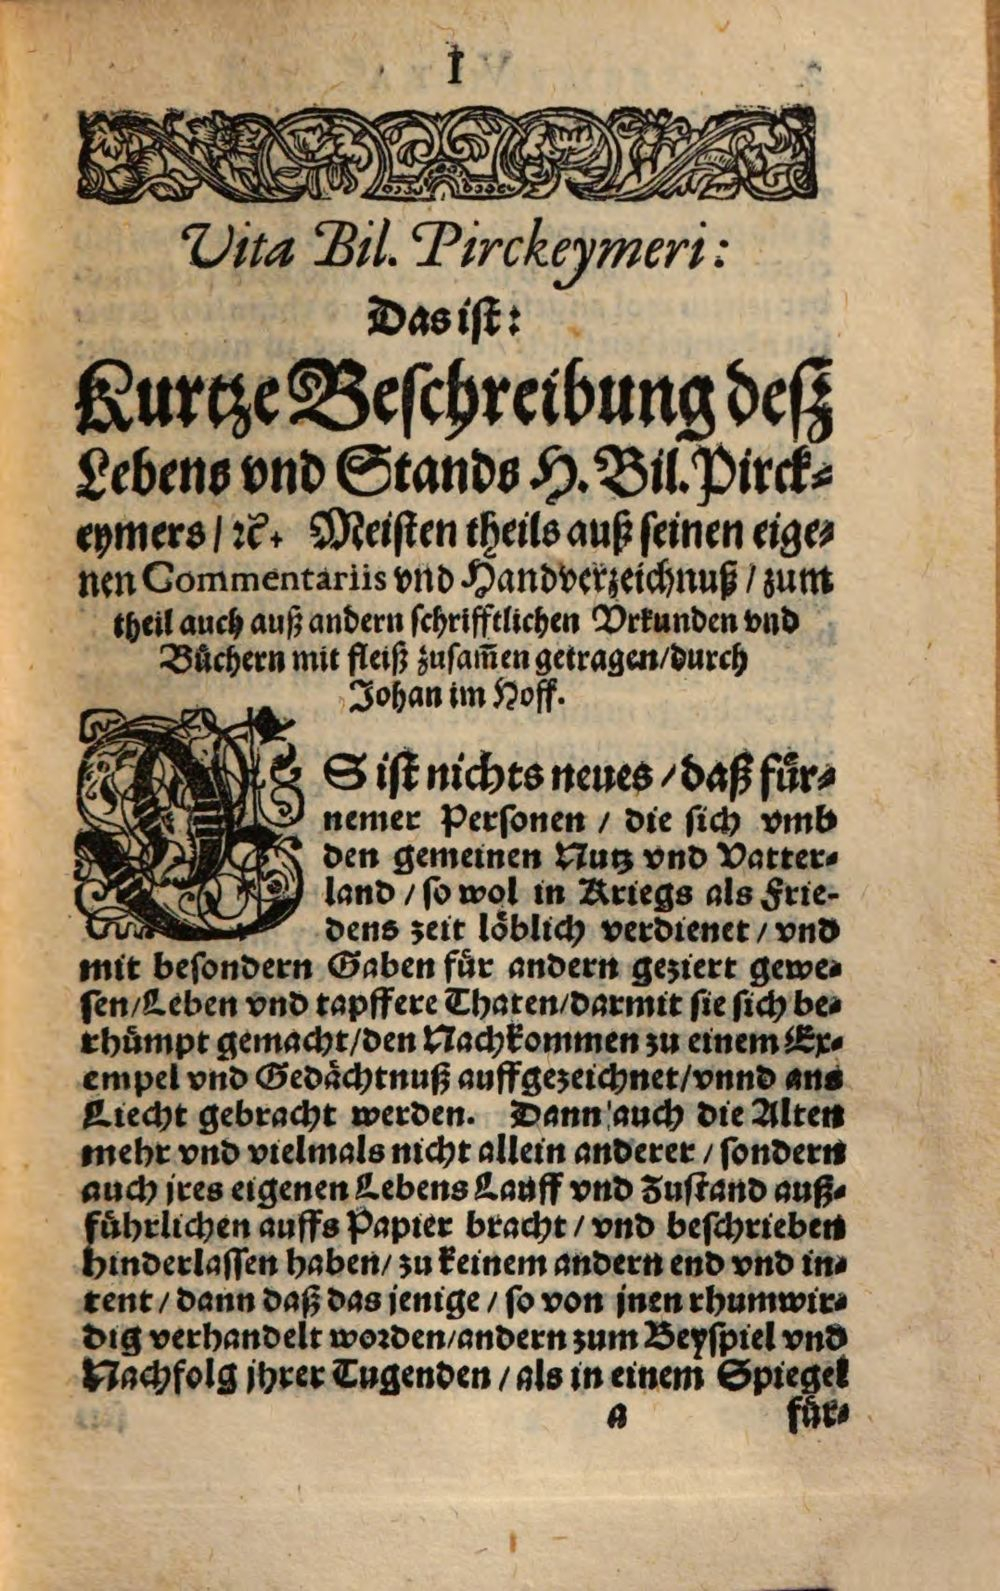 1
Vita Bil. Pirckeymeri:
Das ist:
Kurtze Beschreibung desz
Lebens vnd Stands H. Bil. Pirck⸗
eymers / ꝛc̃. Meisten theils auß seinen eige⸗
nen Commentariis vnd Handverzeichnuß / zum
theil auch auß andern schrifftlichen Vrkunden vnd
Buͤchern mit fleiß zusam̃en getragen / durch
Johan im Hoff.
ES ist nichts neues / daß fuͤr⸗
nemer Personen / die sich vmb
den gemeinen Nutz vnd Vatter⸗
land / so wol in Kriegs als Frie-
dens zeit loͤblich verdienet / vnd
mit besondern Gaben fuͤr andern geziert gewe⸗
sen / Leben vnd tapffere Thaten / darmit sie sich be⸗
rhuͤmpt gemacht / den Nachkommen zu einem Ex⸗
empel vnd Gedaͤchtnuß auffgezeichnet / vnnd ans
Liecht gebracht werden. Dann auch die Alten
mehr vnd vielmals nicht allein anderer / sondern
auch jres eigenen Lebens Lauff vnd Zustand auß⸗
fuͤhrlichen auffs Papier bracht / vnd beschrieben
hinderlassen haben / zu keinem andern end vnd in⸗
tent / dann daß das jenige / so von jnen rhumwir⸗
dig verhandelt worden / andern zum Beyspiel vnd
Nachfolg jhrer Tugenden / als in einem Spiegel
a fuͤr⸗